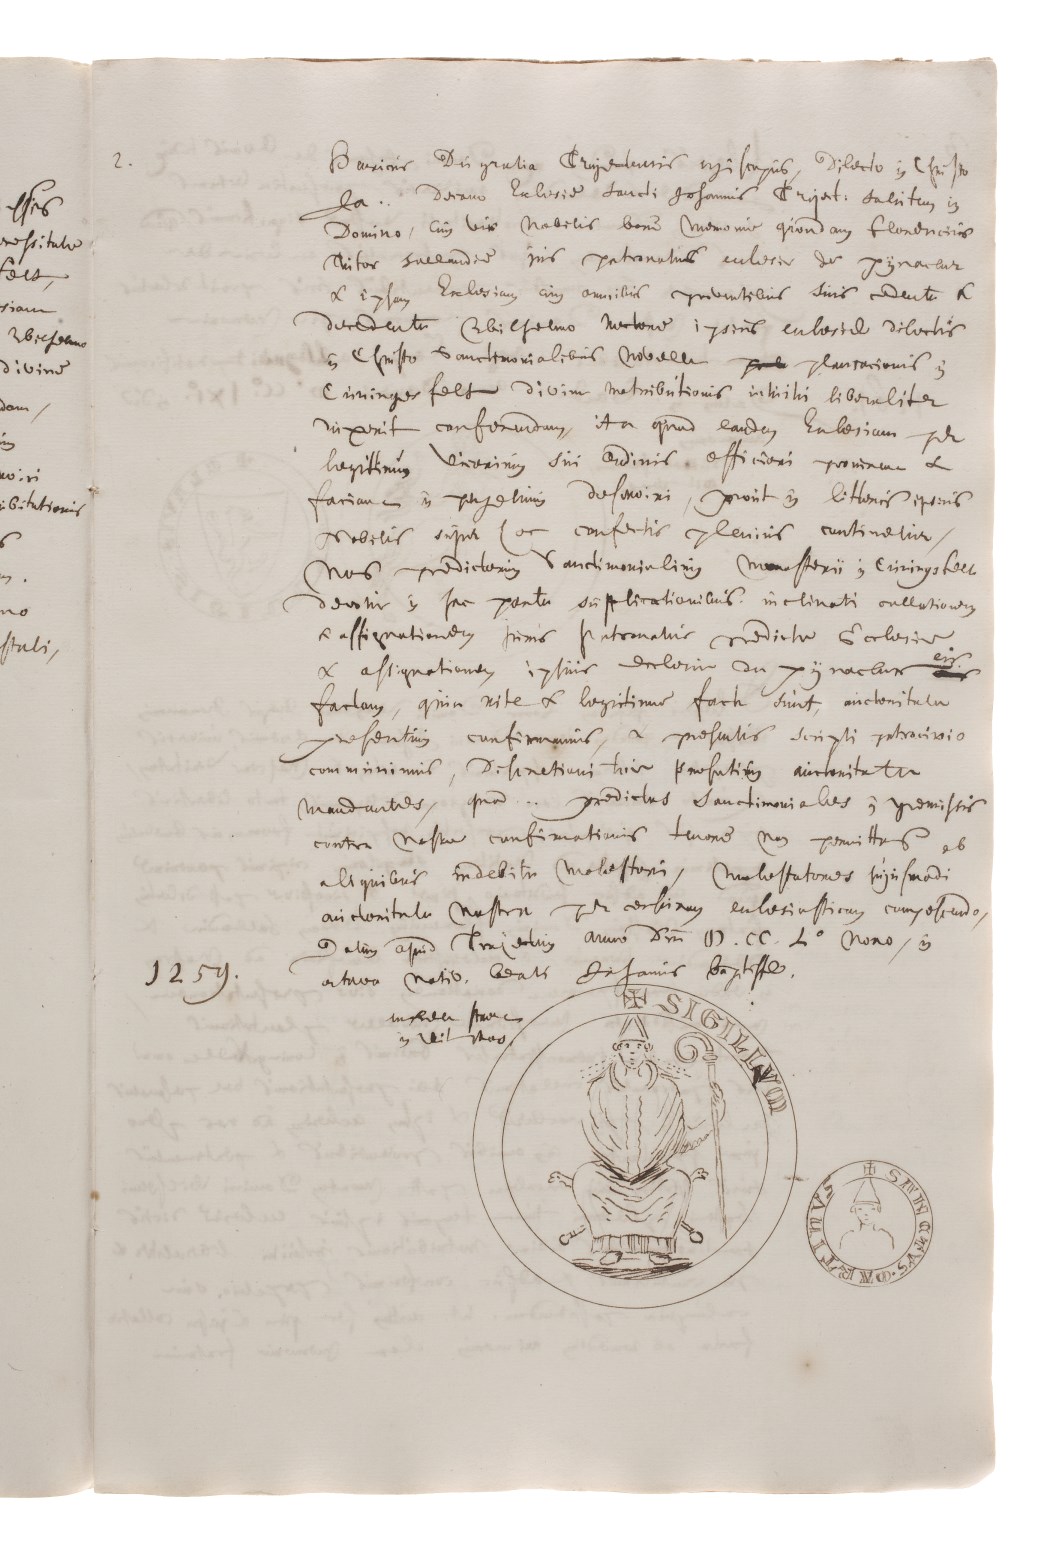 2.
Henricus Dei gratia Traiectensis episcopus, Dilecto in Christo
.. Decano Ecclesie sancti Johannis Traiect: salutem in
Domino, cum vir Nobilis bone memorie quondam Florencius
tutor Hollandie jus patronatus ecclesie de pijnacker
& ipsam Ecclesiam cum omnibus proventibus suis cedente &
decedente Wilhelmo Rectore ipsius ecclesie dilectis
in Christo Sanctimonialibus Novelle plantacionis in
Coninxfelt divine retributionis intuitu liberaliter
duxerit conferendam, ita quod eandem Ecclesiam per
legitimum vicarium sui ordinis officiari procurent &
faciant in perpetuum deserviri, prout in litteris ipsius
Nobilis super hoc confectis plenius continetur,
Nos predictarum Sanctimonialium Monasterii in Coningsfelt
devotis in hac parte supplicationibus inclinati collationem
& assignationem juris patronatus predicte Ecclesie
& assignationem ipsius ecclesie de pijnacker eis
factam, quia rite & legitime facte sunt, auctoritate
presentium confirmamus, & presentis scripti patrocinio
communimus, Discretioni tue presentium auctoritate
mandantes, quod .. predictas Sanctimoniales in premissis
contra nostre confirmationis tenorem non permittas ab
aliquibus indebite molestari, molestatores hujusmodi
auctoritate nostra per censuram ecclesiasticam compescendo,
Datum apud Traiectum anno Dni M. CC. L° Nono, in
octava nativ. beati Johannis baptiste.
1259.
SIGILLVM
SANCTVS MARTINVS